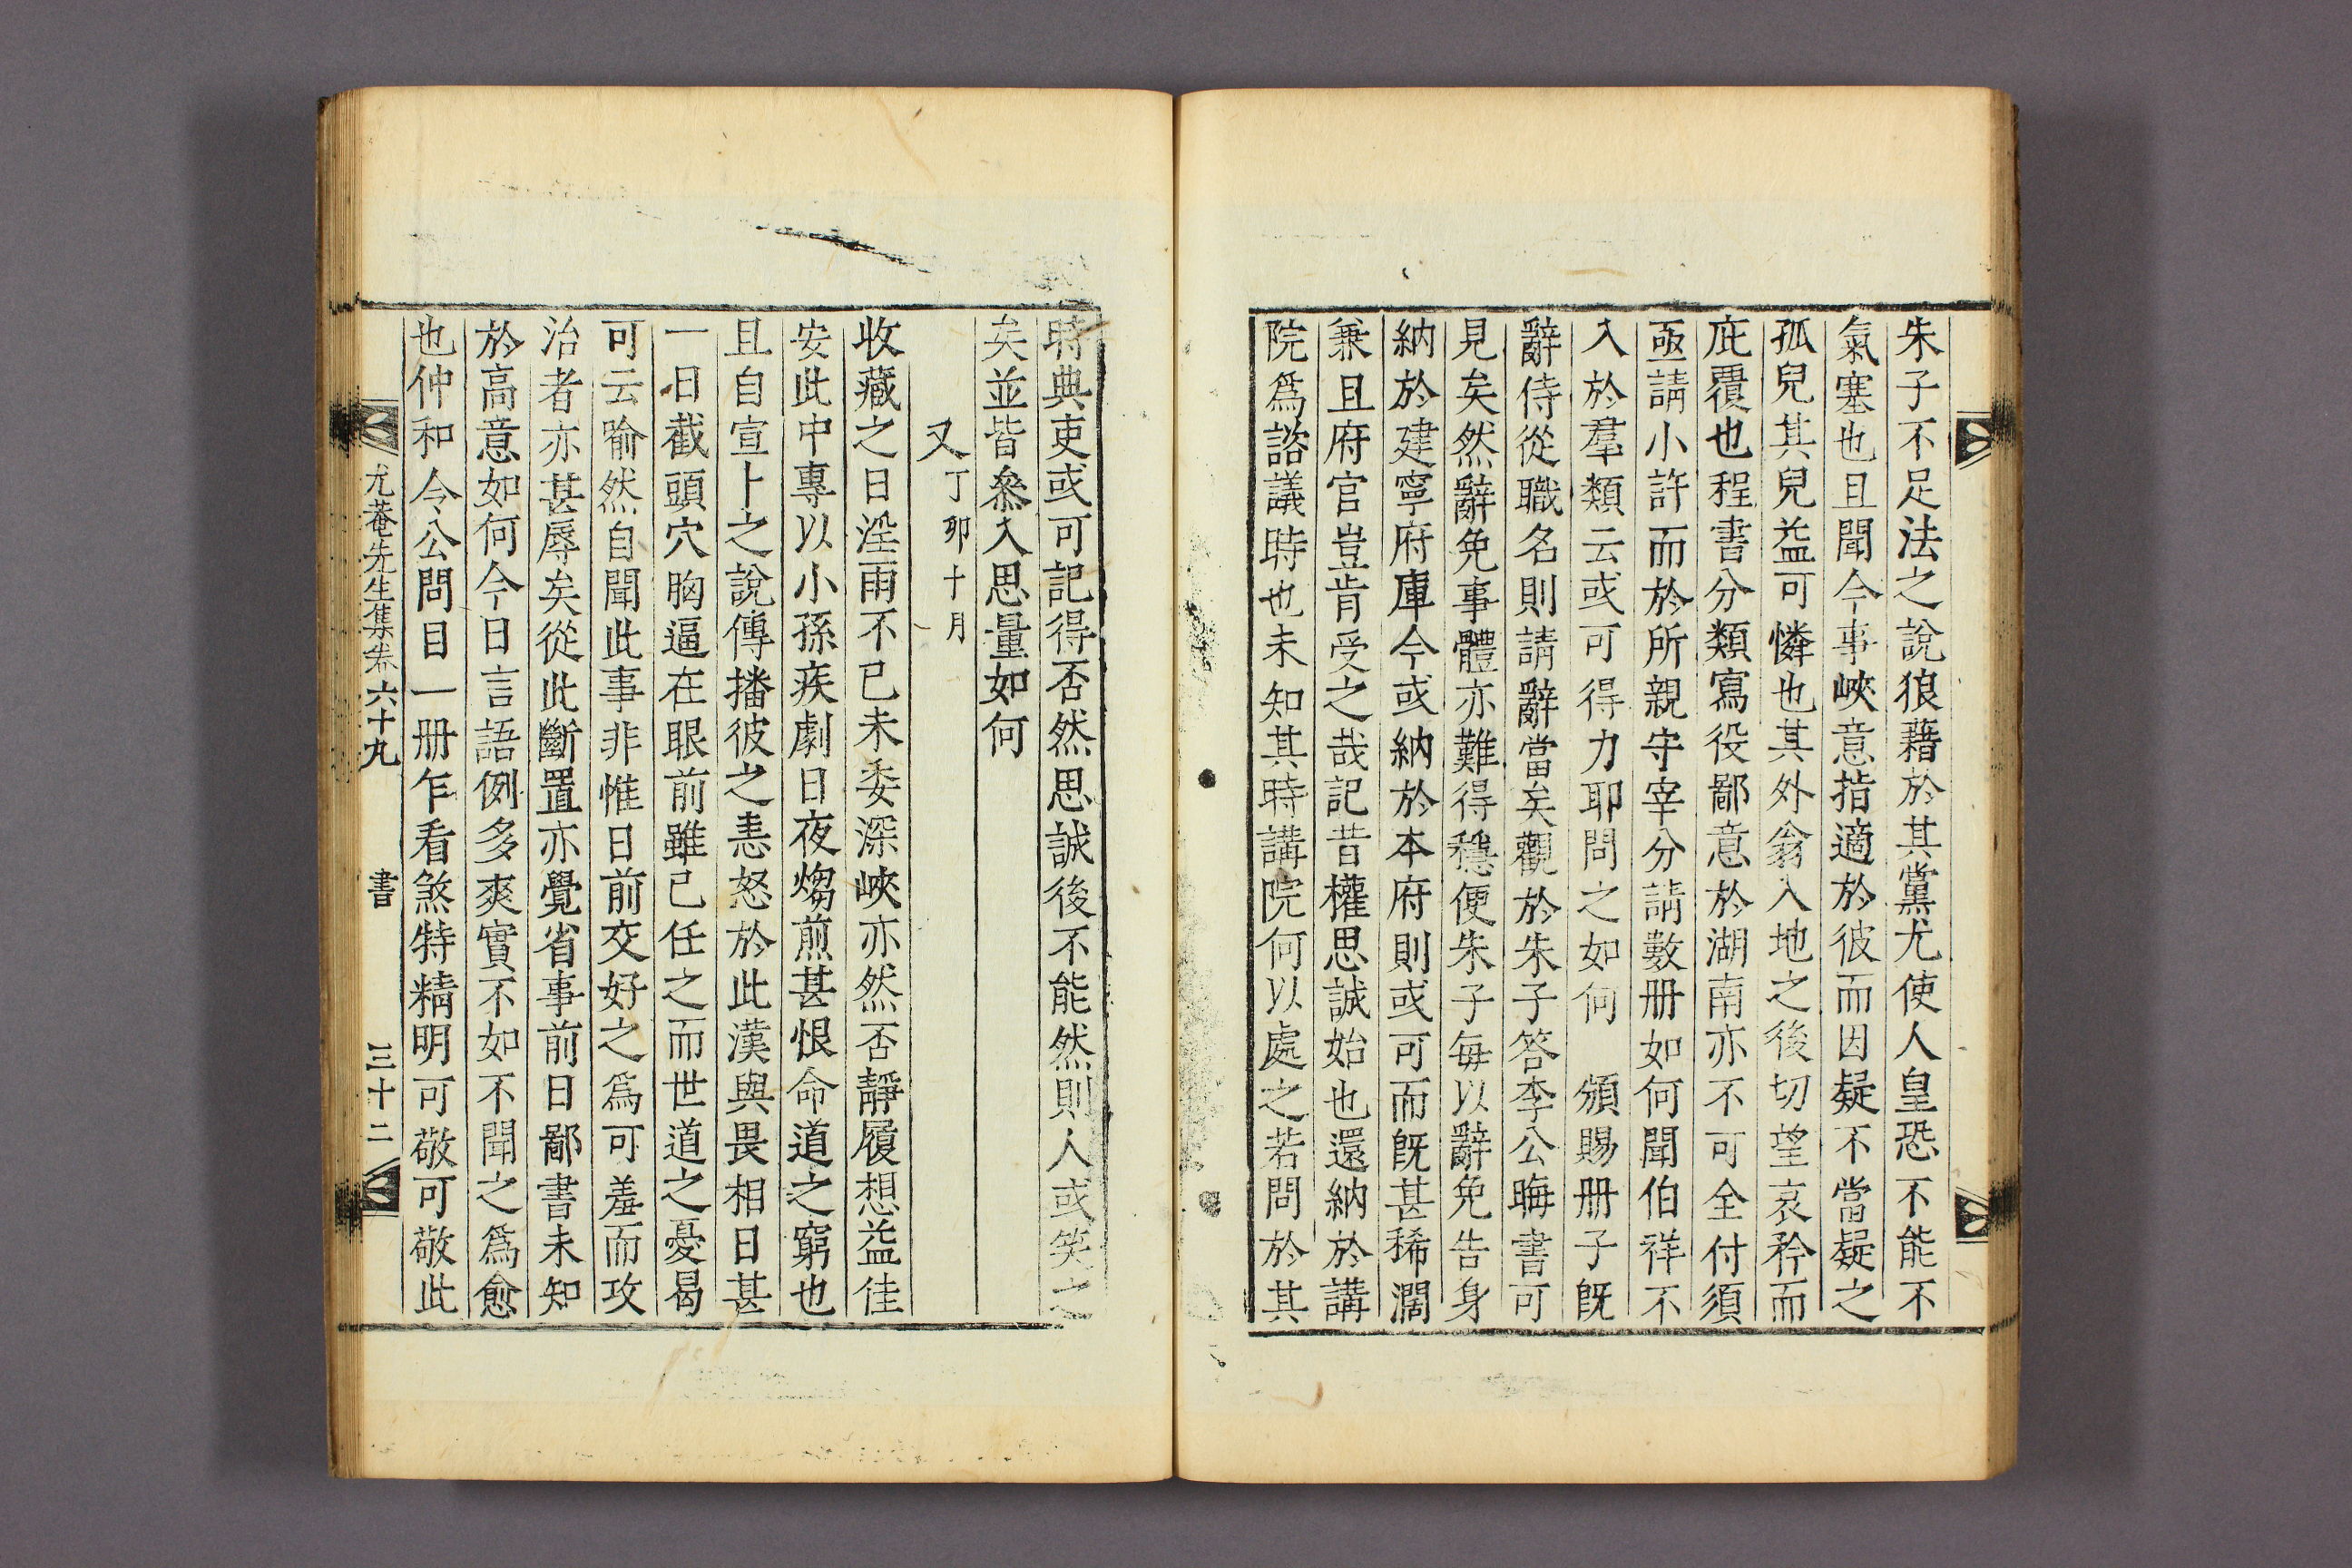 朱子不足法之說狼藉於其黨尤使人皇恐不能不
氣塞也且聞今事峽意指適於彼而因疑不當疑之
孤兒其兒益可憐也其外翁入地之後切望哀矜而
庇覆也程書分類寫役鄙意於湖南亦不可全付須
亟請小許而於所親守宰分請數册如何聞伯祥不
入於羣類云或可得力耶問之如何 頒賜册子旣
辭侍從職名則請辭當矣觀於朱子答李公晦書可
見矣然辭免事體亦難得穩便朱子每以辭免告身
納於建寧府庫今或納於本府則或可而旣甚稀濶
兼且府官豈肯受之哉記昔權思誠始也還納於講
院爲諮議時也未知其時講院何以處之若問於其
時典吏或可記得否然思誠後不能然則人或笑之
矣並皆叅入思量如何
又丁卯十月
收藏之日淫雨不已未委深峽亦然否靜履想益佳
安此中專以小孫疾劇日夜煼煎甚恨命道之窮也
且自宣卜之說傳播彼之恚怒於此漢與畏相日甚
一日截頭穴胸逼在眼前雖己任之而世道之憂曷
可云喻然自聞此事非惟日前交好之爲可羞而攻
治者亦甚辱矣從此斷置亦覺省事前日鄙書未知
於高意如何今日言語例多爽實不如不聞之爲愈
也仲和今公問目一册乍看煞特精明可敬可敬此
尤菴先生集卷六十九 書 三十二